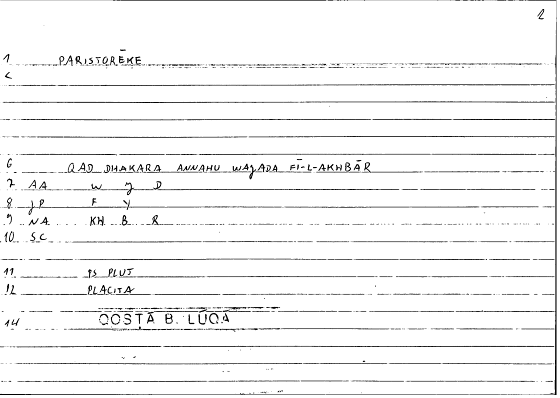 2
1 PARISTORĒKE
<
6 QAD DHAKARA ANNAHU WAJADA FĪ-L-AKHBĀR
7 AA W J D
8 JP F Y
9 NA KH B R
10 SC
11 PS PLUT
12 PLACITA
14 QOSṬĀ B. LŪQĀ